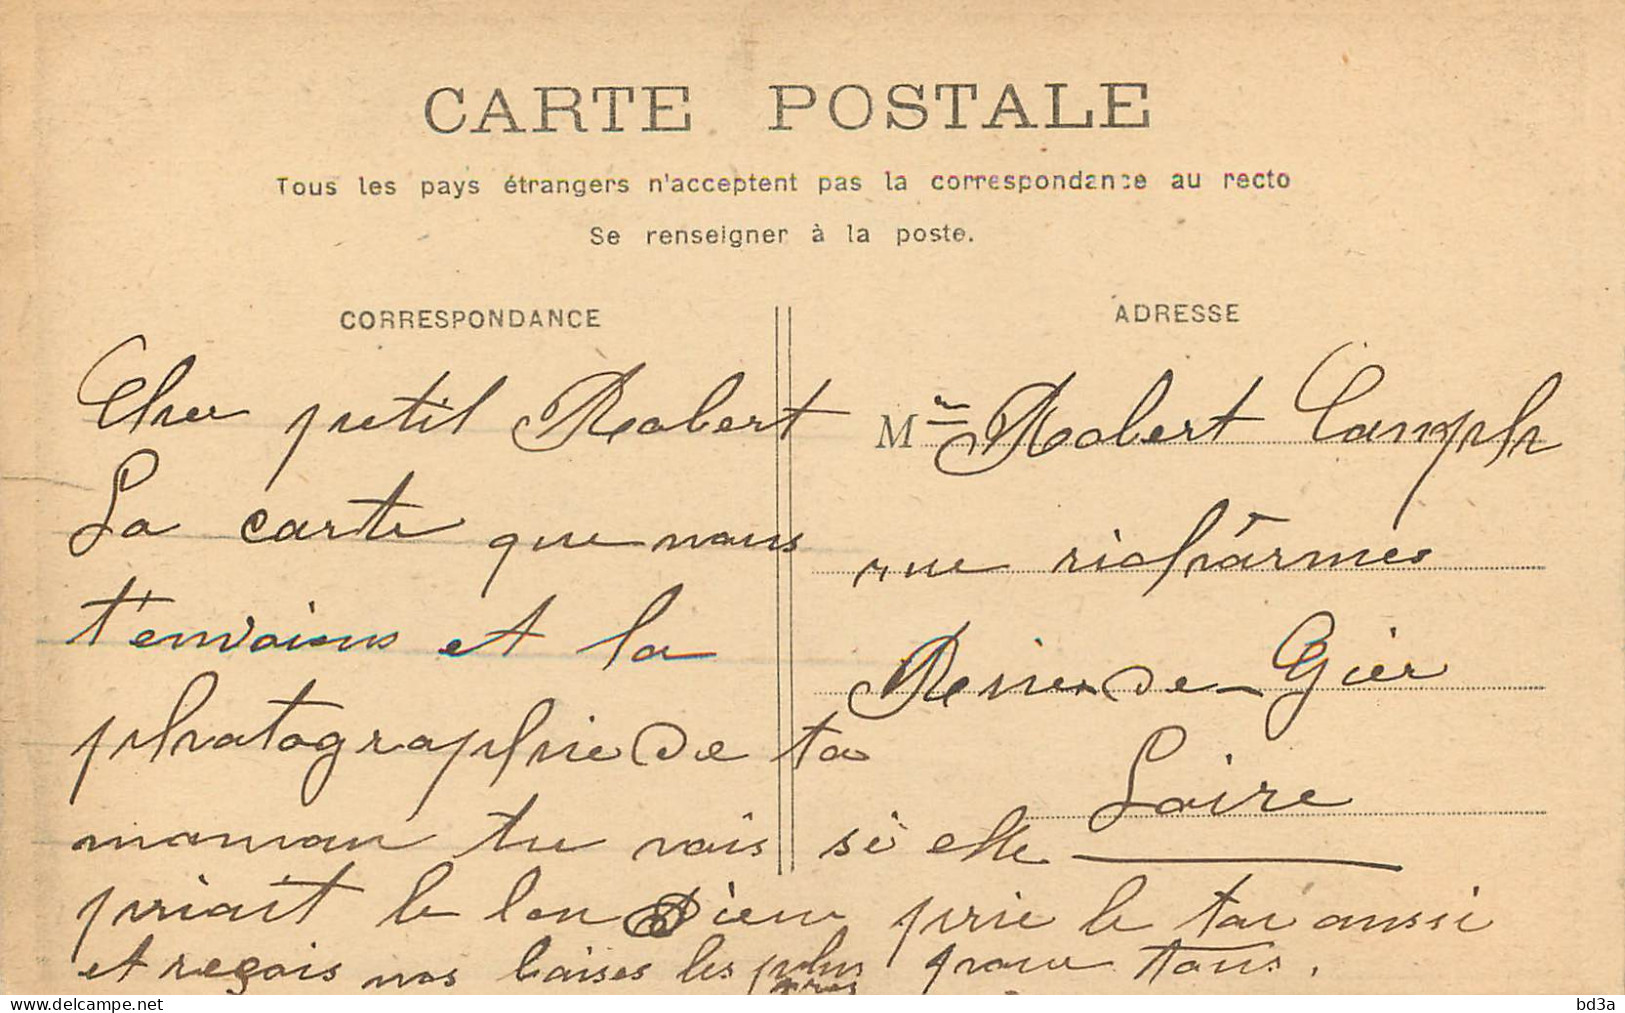 CARTE POSTALE
Tous les pays étrangers n'acceptent pas la correspondance au recto
Se renseigner à la poste.
CORRESPONDANCE
Cher petit Robert
La carte que nous
t'envoions et la
photographie de ta
maman tu vois si elle
priait le bon Dieu prie le toi aussi
et reçois nos baises les plus gros pour tous.
ADRESSE
Mr Robert Camph
rue richarmes
Rive-de-Gier
Loire
delcampe.net
bd3a